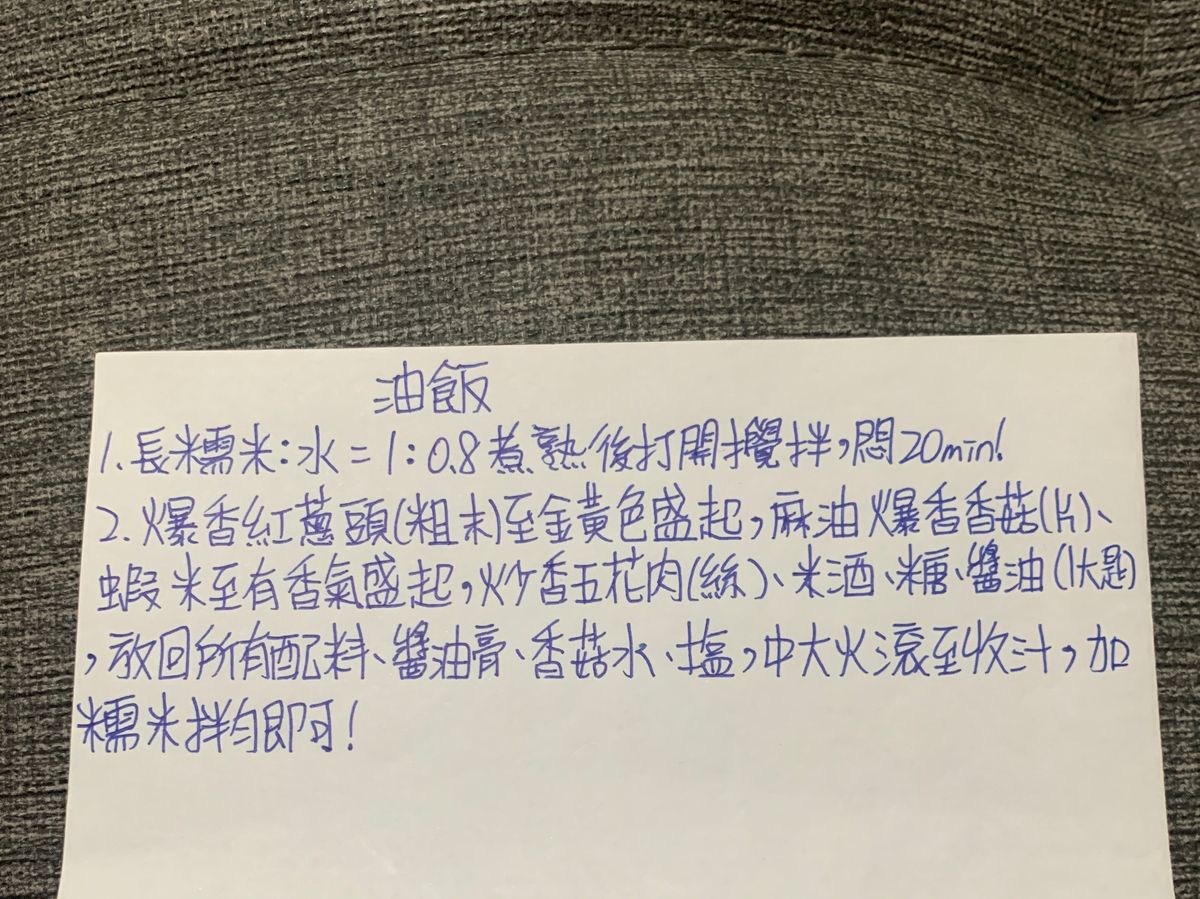 油飯
1.長糯米:水=1:0.8煮熟後打開攪拌,悶20min!
2.爆香紅蔥頭(粗末)至金黃色盛起,麻油爆香香菇(片)、
蝦米至有香氣盛起,炒香五花肉(絲)、米酒、糖、醬油(1大匙)
,放回所有配料、醬油膏、香菇水、塩,中大火滾至收汁,加
糯米拌均即可!